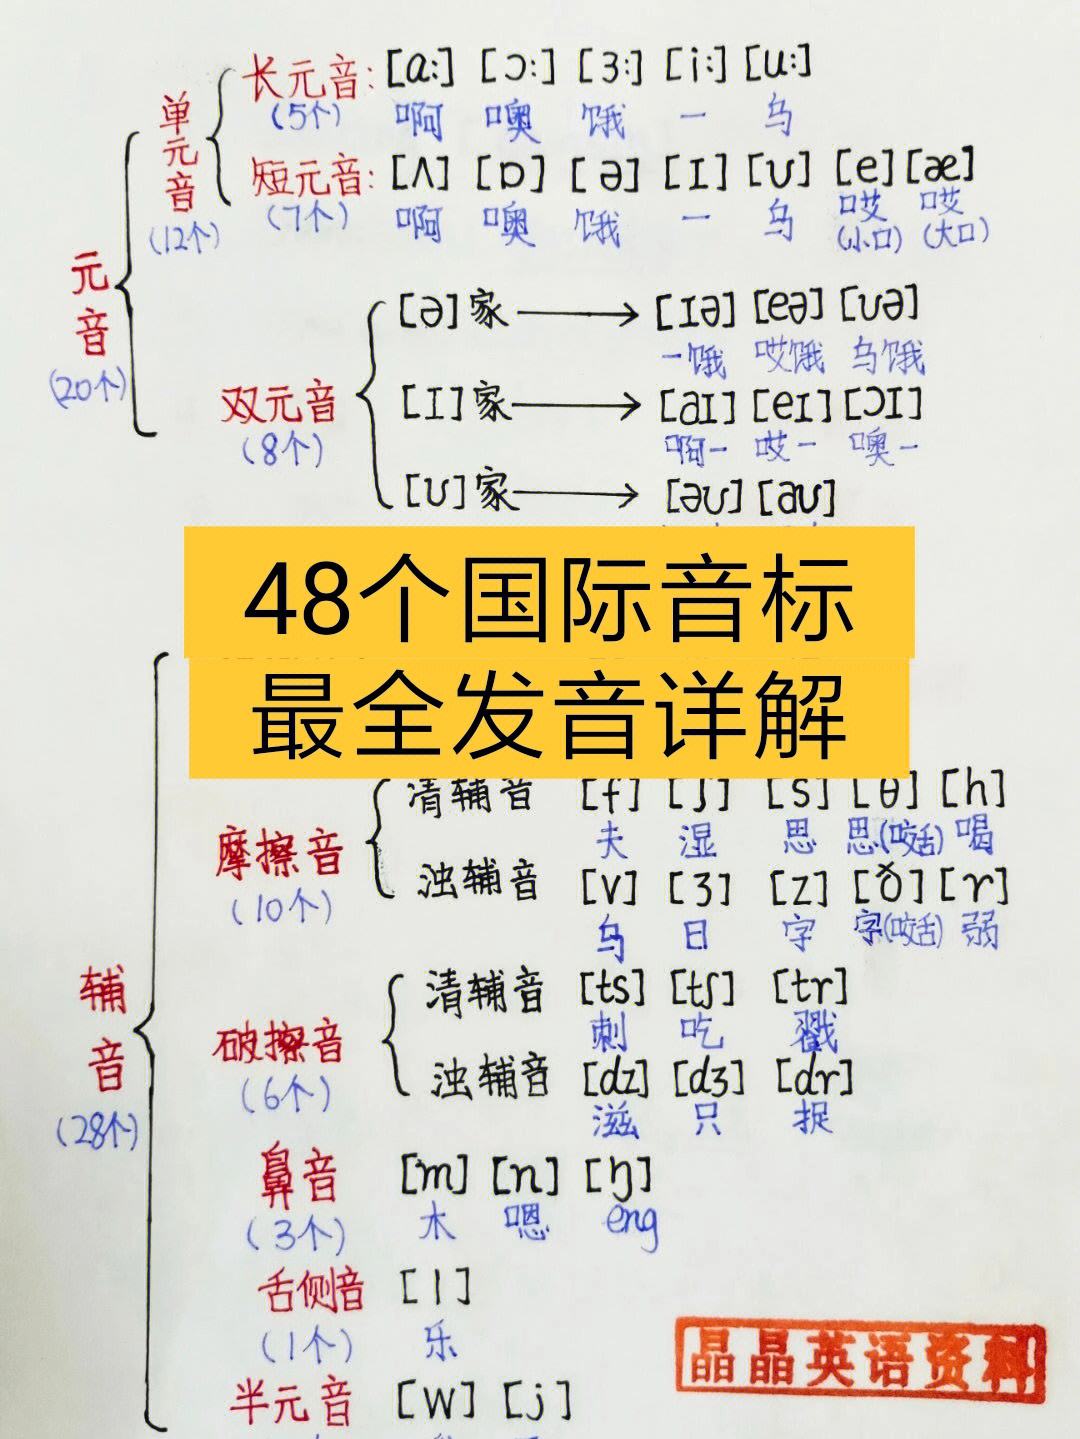 长元音: [ɑ:] [ɔ:] [ɜ:] [i:] [u:]
(5个) 啊 噢 饿 一 乌
单元音
(12个)
短元音: [ʌ] [ɒ] [ə] [ɪ] [ʊ] [e] [æ]
(7个) 啊 噢 饿 一 乌 哎(小口) 哎(大口)
元音
(20个)
[ə]家 [ɪə] [eə] [ʊə]
一饿 哎饿 乌饿
双元音
(8个)
[ɪ]家 [aɪ] [eɪ] [ɔɪ]
啊一 哎一 噢一
[ʊ]家 [əʊ] [aʊ]
48个国际音标
最全发音详解
辅音
(28个)
摩擦音
(10个)
清辅音 [f] [ʃ] [s] [θ] [h]
夫 湿 思 思(咬舌) 喝
浊辅音 [v] [ʒ] [z] [ð] [r]
乌 日 字 字(咬舌) 弱
破擦音
(6个)
清辅音 [ts] [tʃ] [tr]
刺 吃 戳
浊辅音 [dz] [dʒ] [dr]
滋 只 捉
鼻音 [m] [n] [ŋ]
(3个) 木 嗯 eng
舌侧音 [l]
(1个) 乐
半元音 [w] [j]
晶晶英语资料